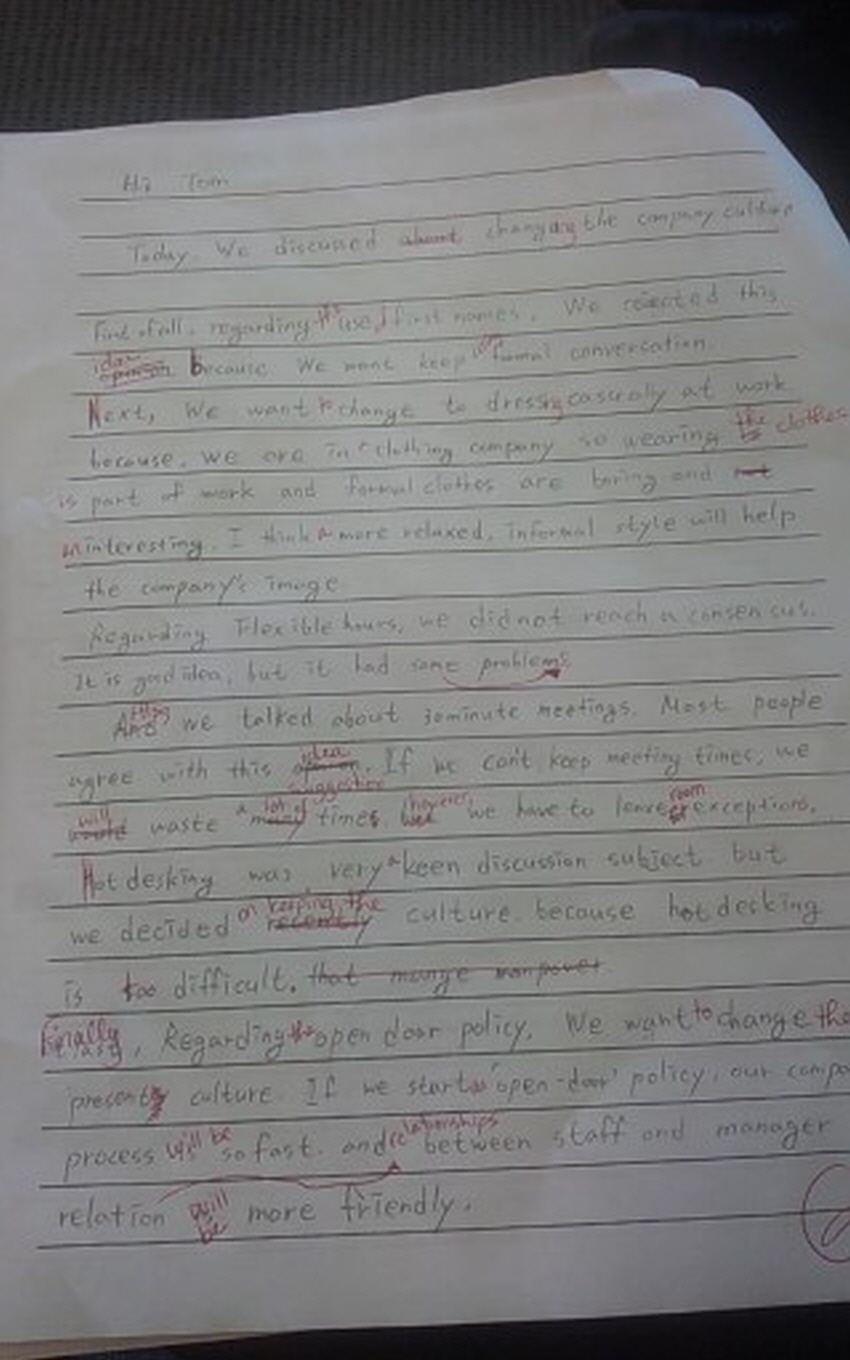 Hi Tom
Today. We discussed about changing the company culture
First of all, regarding the used first names. We rejected this
idea opinion because We want keep formal conversation.
Next, We want to change to dressing casually at work
because, we are in a clothing company so wearing the clothes
is part of work and formal clothes are boring and not
uninteresting. I think a more relaxed, informal style will help
the company's image
Regarding Flexible hours, we did not reach a consencus.
It is good idea, but it had some problems
And we talked about 30minute meetings. Most people
agree with this opinion idea suggestion. If we can't keep meeting times, we
would will waste a many lot of times but however we have to leave room for exceptions.
Hot desking was very a keen discussion subject but
we decided on recently keeping the culture. because hot desking
is too difficult. that mange manpower
Finally, Regarding the open door policy. We want to change the
present culture. If we start 'open-door' policy, our compa
process will be so fast. and relationships between staff and manager
relation will be more friendly.